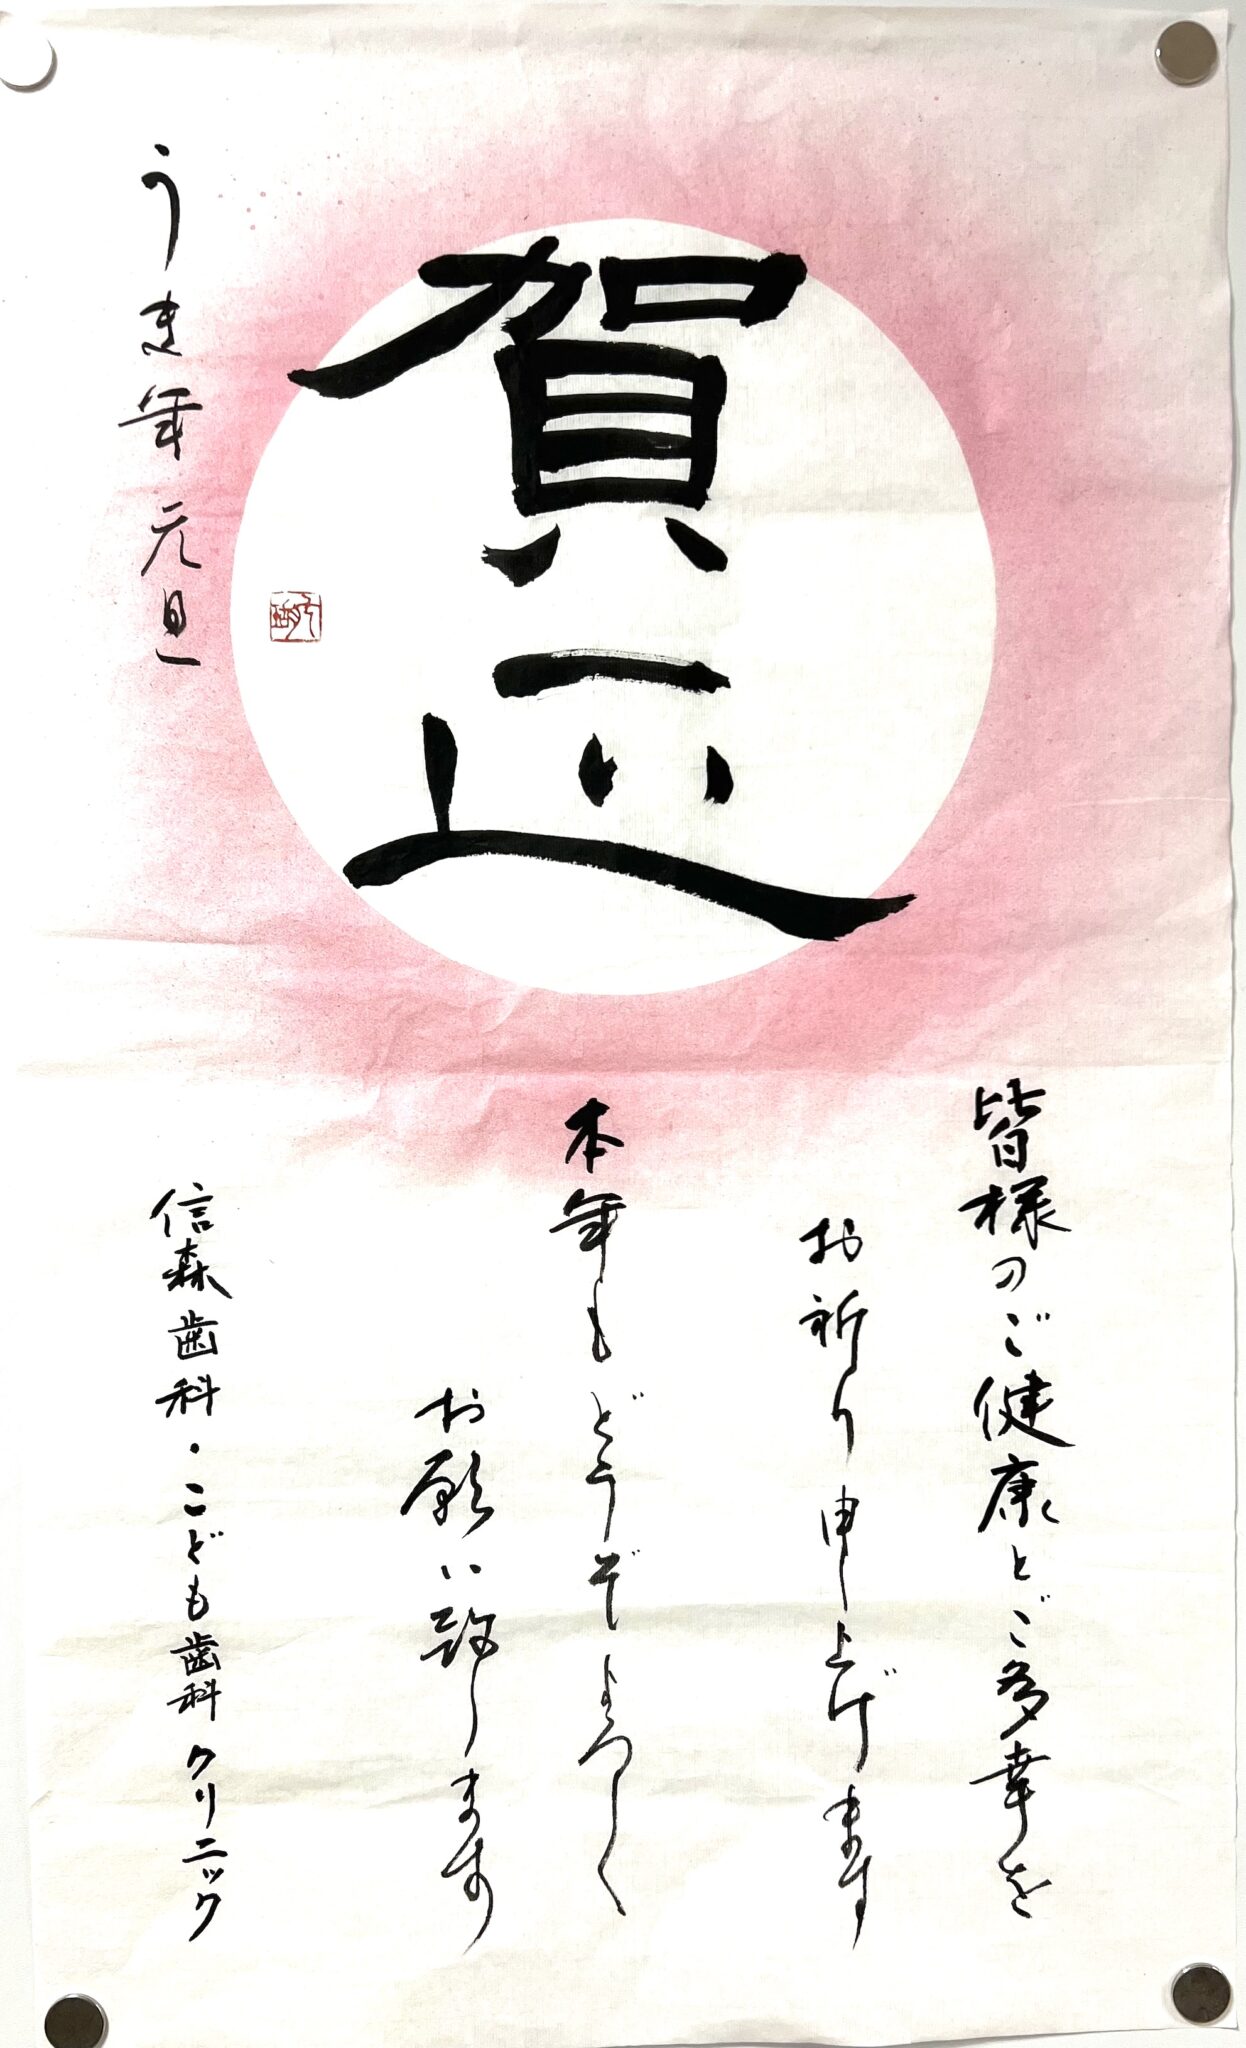 賀正
皆様のご健康とご多幸を
お祈り申し上げます
本年もどうぞよろしく
お願い致します
うき年元旦
信森歯科・こども歯科クリニック